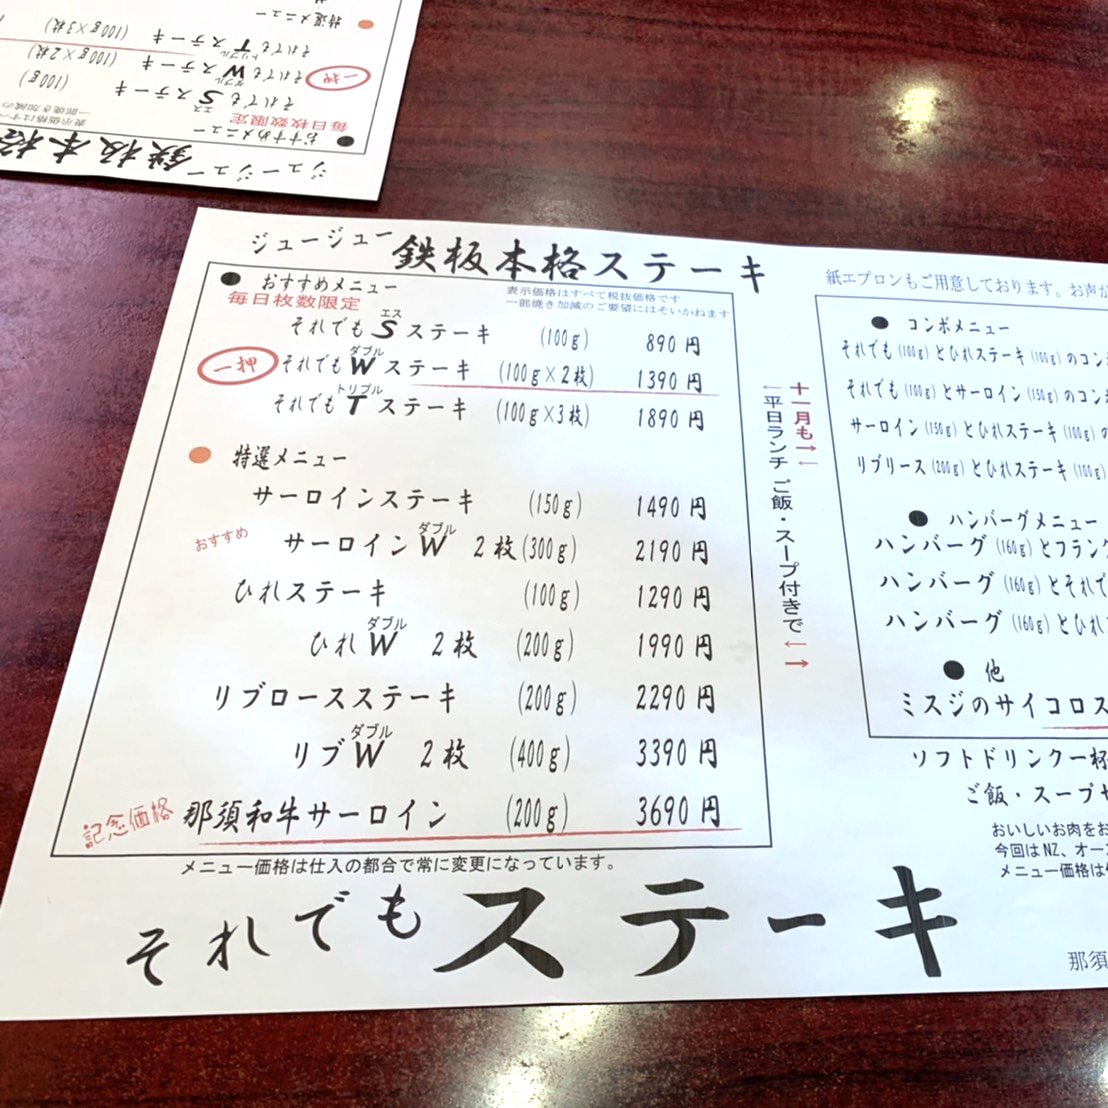 ジュージュー 鉄板本格ステーキ
● おすすめメニュー
毎日枚数限定
表示価格はすべて税抜価格です
一部焼き加減のご要望にはそいかねます
それでも S エス ステーキ (100g) 890円
一押 それでも W ダブル ステーキ (100g×2枚) 1390円
それでも T トリプル ステーキ (100g×3枚) 1890円
● 特選メニュー
サーロインステーキ (150g) 1490円
おすすめ サーロイン W ダブル 2枚(300g) 2190円
ひれステーキ (100g) 1290円
ひれ W ダブル 2枚 (200g) 1990円
リブロースステーキ (200g) 2290円
リブ W ダブル 2枚 (400g) 3390円
記念価格 那須和牛サーロイン (200g) 3690円
メニュー価格は仕入の都合で常に変更になっています。
それでもステーキ
十一月も→←
←平日ランチ ご飯・スープ付きで←→
紙エプロンもご用意しております。お声が
● コンボメニュー
それでも(100g)とひれステーキ(100g)のコン
それでも(100g)とサーロイン(150g)のコン
サーロイン(150g)とひれステーキ(100g)の
リブリース(200g)とひれステーキ(100g)
● ハンバーグメニュー
ハンバーグ(160g)とフランク
ハンバーグ(160g)とそれで
ハンバーグ(160g)とひれ
● 他
ミスジのサイコロス
ソフトドリンク一杯
ご飯・スープや
おいしいお肉をお
今回はNZ、オース
メニュー価格は
那須
ジュージュー 鉄板本格
● おすすめメニュー
毎日枚数限定
表示価格はすべ
一部焼き加減の
それでも S エス ステーキ (100g)
一押 それでも W ダブル ステーキ (100g×2枚)
それでも T トリプル ステーキ (100g×3枚)
● 特選メニュー